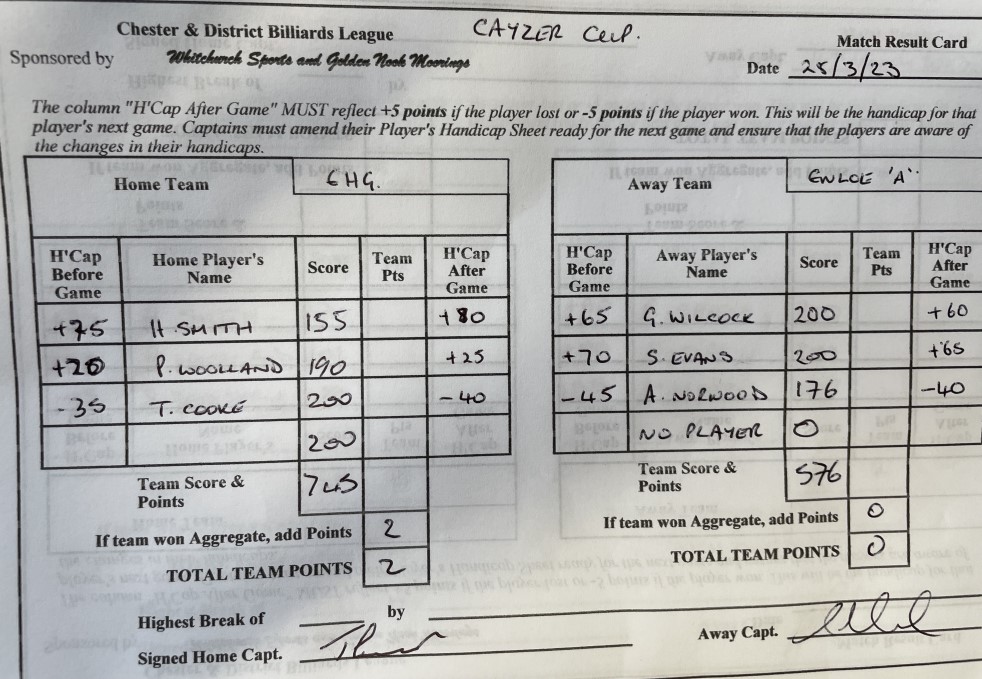 Chester & District Billiards League CAYZER CUP.
Sponsored by Whitchurch Sports and Golden Nook Moorings
Match Result Card
Date 25/3/23
The column "H'Cap After Game" MUST reflect +5 points if the player lost or -5 points if the player won. This will be the handicap for that
player's next game. Captains must amend their Player's Handicap Sheet ready for the next game and ensure that the players are aware of
the changes in their handicaps.
Home Team GHG.
H'Cap Before Game Home Player's Name Score Team Pts H'Cap After Game
+75 H. SMITH 155 +80
+20 P. WOOLLAND 190 +25
-35 T. COOKE 200 -40
200
Team Score & Points 745
If team won Aggregate, add Points 2
TOTAL TEAM POINTS 2
Highest Break of by
Signed Home Capt.
Away Team 'A'
H'Cap Before Game Away Player's Name Score Team Pts H'Cap After Game
+65 G. WILCOCK 200 +60
+70 S. EVANS 200 +65
-45 A. NORWOOD 176 -40
NO PLAYER 0
Team Score & Points 576
If team won Aggregate, add Points 0
TOTAL TEAM POINTS 0
Away Capt.